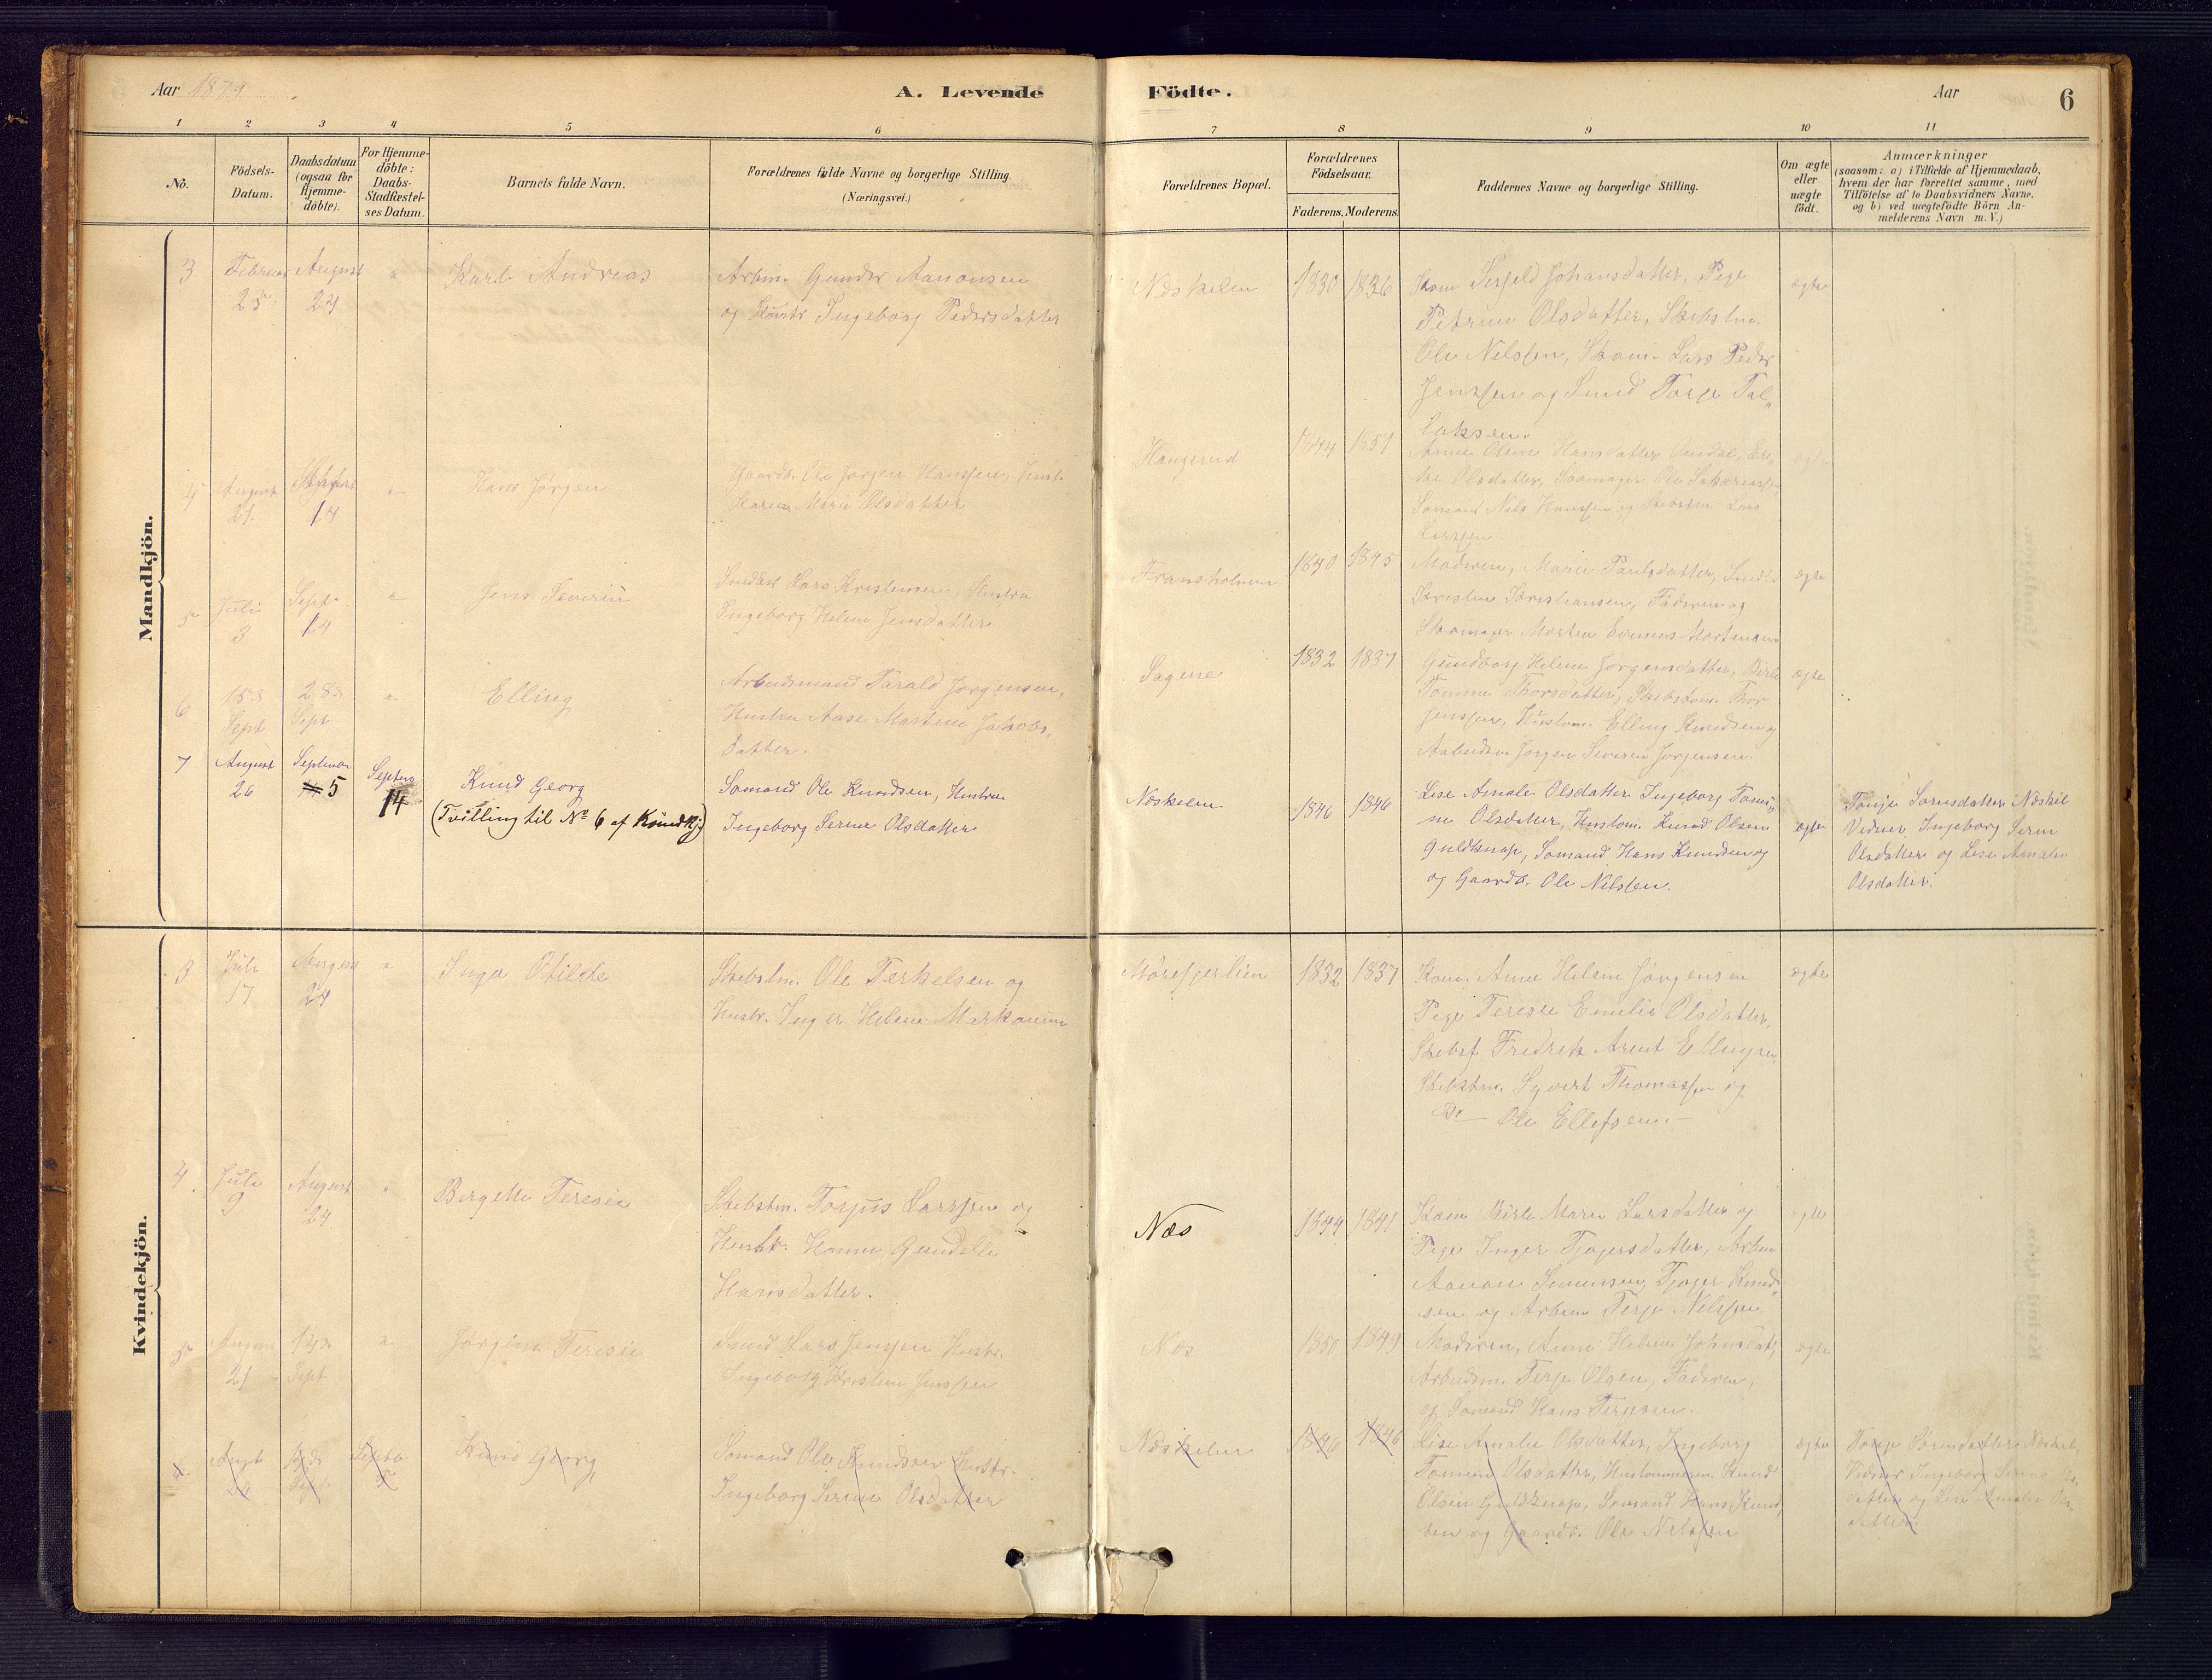 Aar 1879 A. Levende Födte. Aar 6
1 2 3 4 5 6 7 8 9 10 11
No.
Födsels-
Datum.
Daabsdatum
(ogsaa for
Hjemme-
döbte).
For Hjemme-
döbte:
Daabs-
Stadfæstel-
ses Datum.
Barnets fulde Navn.
Forældrenes fulde Navne og borgerlige Stilling.
(Næringsvei.)
Forældrenes Bopæl.
Forældrenes
Födselsaar.
Faderens. Moderens.
Faddernes Navne og borgerlige Stilling.
Om ægte
eller
uægte
födt.
Anmærkninger
(saasom: a) i Tilfælde af Hjemmedaab,
hvem der har forrettet samme, med
Tilföielse af to Daabsvidners Navne.
og b) ved uægtefödte Börn An-
melderens Navn m.V.)
Mandkjön.
3
Februar
25
August
24
"
Karl Andreas
Arbm. Gunder Aanonsen
og Hustr Ingeborg Pedersdatter
Næskelen
1830 1836
Kone Serfeld Johansdatter, Pige
Petrine Olsdatter, Skibstm.
Ole Nelssen, Lars Peder
Jenssen og Smed Torje Tal"
laksen.
ægte
4
August
21.
14
"
Hans Jørgen
Gaardb. Ole Jørgen Hanssen, Hust.
Karen Marie Olsdatter
Haugerud
1844 1851
Anne Olene Hansdatter
Olsdatter, Ole
Sømand Nels Hanssen og Skibstm Lars
Larssen.
5
Juli
3
Sept.
14
"
Jens Severin
Lars Kristensen, Hustru
Ingeborg Helene Jensdatter
Fransholmen
1840 1845
Moderen, Marie Paulsdatter,
Kristen Kristiansen, Faderen og
Morten Evenus Mortensen
ægte
6
18de
Sept
28de
Sept
"
Elling
Arbeidsmand Tarald Jørgensen,
Hustru Aase Martine Jakobs,
datter.
Sagene
1832 1837
Gundborg Helene Jørgensdatter, Birte
Tomine Thorsdatter, Skibstøm. Thor
Jenssen, Hustom. Elling Knudsen og
Arbeidsm Jørgen Severin Jørgensen.
ægte
7
August
26
September
5
Septem
14
Knud Georg
(Tvilling til No 6 af Kvindkj)
Sømand Ole Knudsen, Hustru
Ingeborg Serine Olsdatter
Næskelen
1846 1846
Lise Amalie Olsdatter Ingeborg Tomi"
ne Olsdatter, Hustom. Knud Olsen
Guldknap, Sømand Hans Knudsen og
og Gaardb. Ole Nilssen.
ægte
Tonje Sørnsdatter Næskil
Vidner Ingeborg Serin
Olsdatter og Lise Amalie
Olsdatter.
Kvindekjön.
3
Juli
17
August
24
"
Inga Otilde
Skibstm. Ole Terkelsen og
Hustr. Inger Helene Markanine
1832 1837
Kone Anne Helene Jørgensen
Pige Teresie Emilie Olsdatter,
Skibsf. Fredrek Arent Ellingsen
Skibstm. Syvert Thomassen og
Do — Ole Ellefsen. —
ægte
4.
Juli
9
August
24.
"
Bergette Teresie
Skibstm. Torjus Larssen og
Hustr. Hanne Gundelle
Hansdatter.
Næs
1844 1841
Kone Birte Marie Larsdatter og
Pige Inger Tjøgersdatter, Arbm
Aanon Simonsen, Tjøger Knud"
sen og Arbm Terje Nelssen.
ægte
5
August
21
14de
Sept
"
Jørgine Teresie
Smed Lars Jenssen Hustr.
Ingeborg Kristine Jenssen
Næs
1850 1849
Moderen, Anne Helene Johnsdat,
Arbeidsm. Terje Olsen, Faderen,
og Sømand Hans Terjesen.
ægte
6.
Augst
26
Sept.
Septbr
5
Knud Georg
Sømand Ole Knudsen Hustr.
Ingeborg Serine Olsdatter
Næskelen
1846 1846
Lise Amalie Olsdatter, Ingeborg
Tomine Olsdatter, Hustommermn. Knud
Olsen Guldknap, Sømand Hans Knud,
sen og Gaardb. Ole Nelssen
ægte
Tonje Sørensdatter Næskil,
Vidner Ingeborg Serine Ols
datter og Lise Amalie Ols
datter.